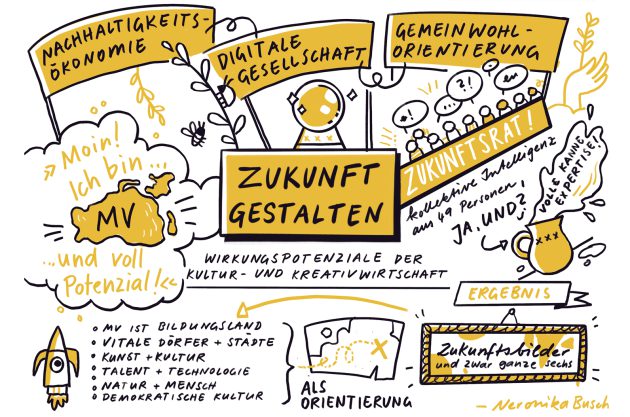 NACHHALTIGKEITS-
ÖKONOMIE
DIGITALE
GESELLSCHAFT
GEMEINWOHL-
ORIENTIERUNG
»Moin!
Ich bin...
MV
...und voll
Potenzial!«
ZUKUNFT
GESTALTEN
?!
ZUKUNFTSRAT!
kollektive Intelligenz
aus 49 Personen,
JA, UND?
VOLLE KANNE
EXPERTISE!
xxx
WIRKUNGSPOTENZIALE DER
KULTUR- UND KREATIVWIRTSCHAFT
ERGEBNIS
MV IST BILDUNGSLAND
VITALE DÖRFER + STÄDTE
KUNST + KULTUR
TALENT + TECHNOLOGIE
NATUR + MENSCH
DEMOKRATISCHE KULTUR
X
ALS
ORIENTIERUNG
Zukunftsbilder
und zwar ganze sechs
— Neronika Busch